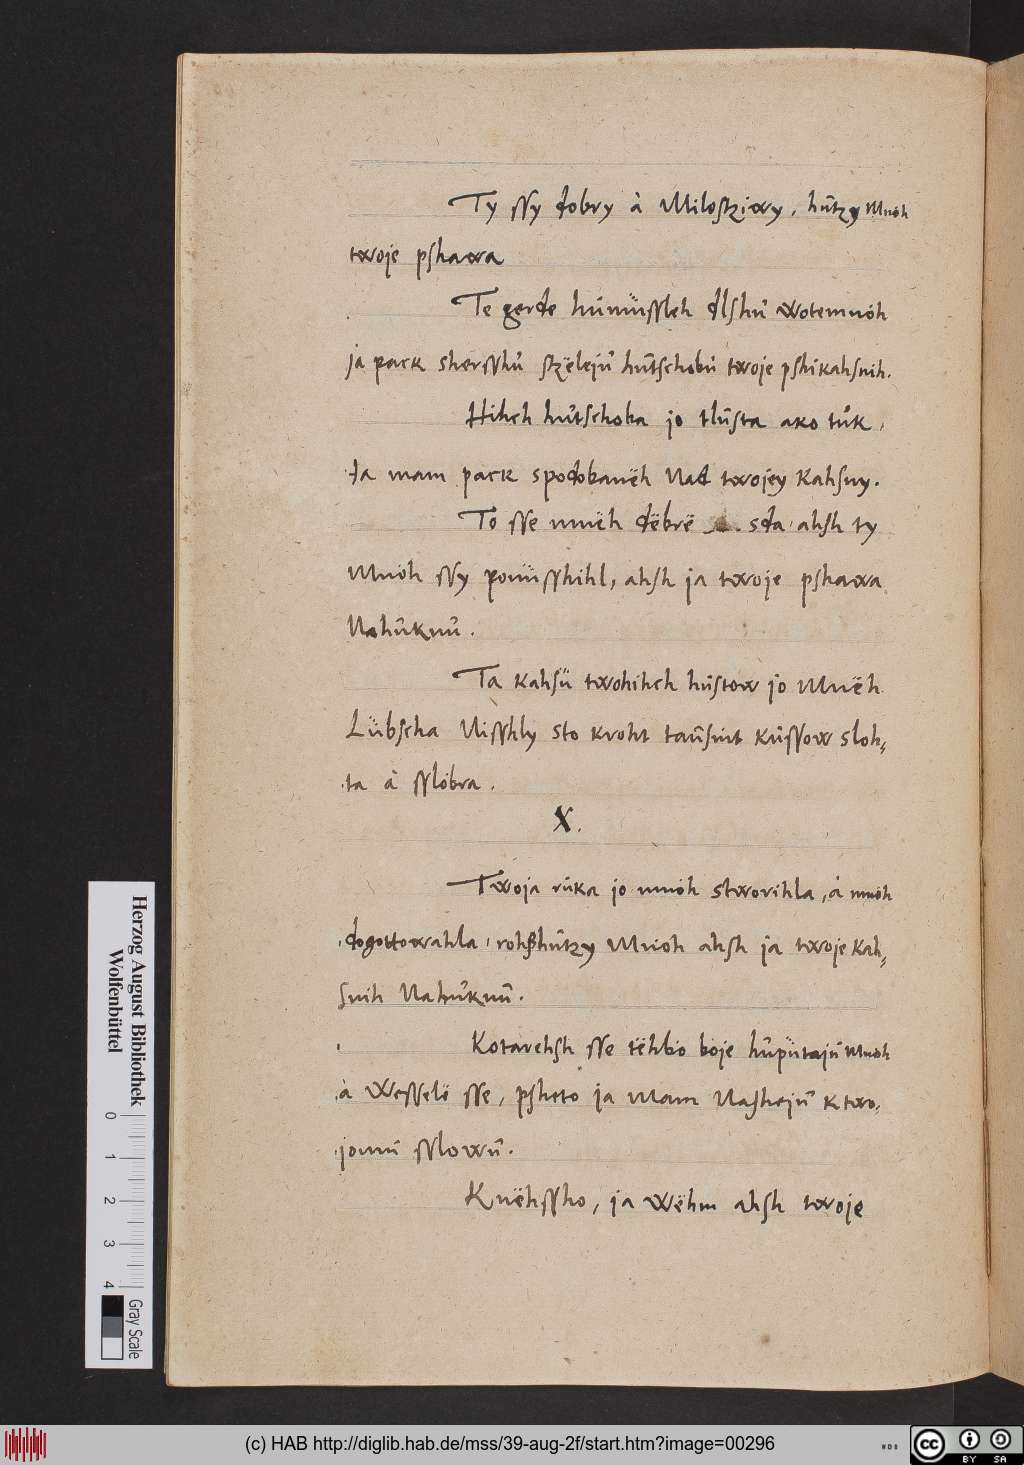 Ty ssy dobry à Milostziwy, hûtzy Mnöh
twoje pshawa
Te gerde hûmüssleh dlshû wotemnöh
ja pack shersshû stzëlejû hûtschobû twoje pshikahsnih.
Hihch hûtschoba jo tlûsta ako tûk,
Ja mam pack spodobanëh Nad twojey Kahsny.
To sse mnëh dëbrë sda, ahsh ty
Mnöh ssy ponüsshihl, ahsh ja twoje pshawa
Nahûknû.
Ta kahsü twohihch hûstow jo Mnëh
Lübscha Nisshly sto kroht taûsnt kûssow sloh⸗
ta à sslöbra.
X.
Twoja rûka jo mnöh stworihla, à mnöh
dogottowahla, rohßhûtzy Mnöh ahsh ja twoje Kah⸗
snih Nahûknû.
Kotarehsh sse tëhbö böje hûpütajû Mnöh
à Wesselë sse, psheto ja Mam Nashejû k two⸗
jomû sslowû.
Knëhssho, ja wëhm ahsh twoje
Herzog August Bibliothek
Wolfenbüttel
0 1 2 3 4
Gray Scale
(c) HAB http://diglib.hab.de/mss/39-aug-2f/start.htm?image=00296
WDB
cc BY SA